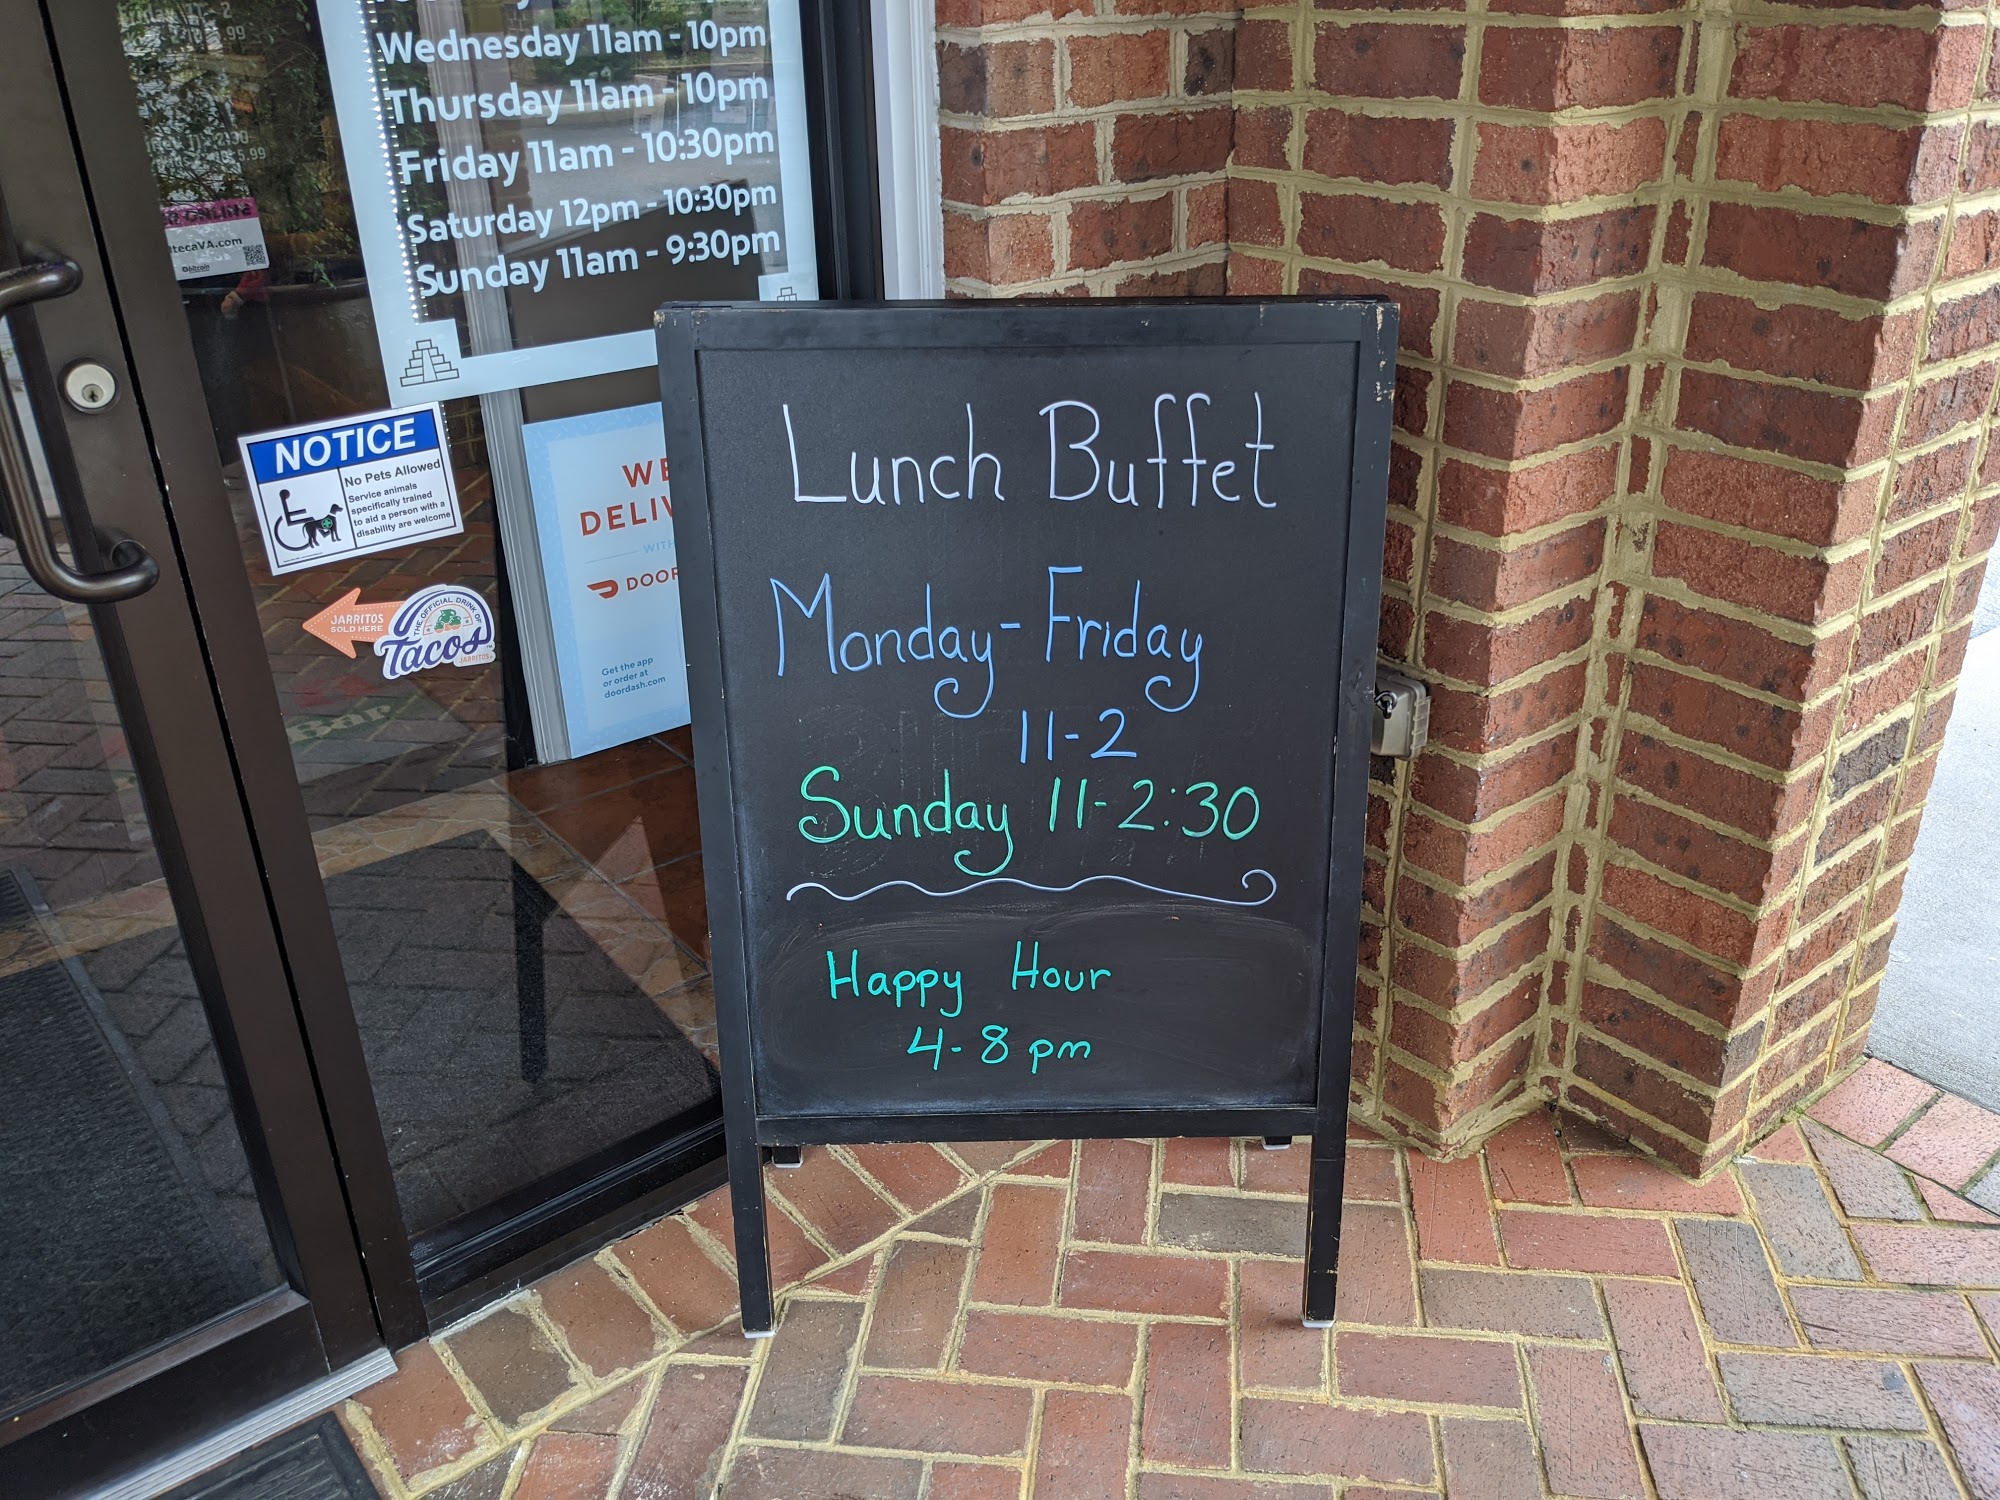 Wednesday 11am - 10pm
Thursday 11am - 10pm
Friday 11am - 10:30pm
Saturday 12pm - 10:30pm
Sunday 11am - 9:30pm
NOTICE
No Pets Allowed
Service animals
specifically trained
to aid a person with a
disability are welcome
JARRITOS
SOLD HERE
THE OFFICIAL DRINK OF
Tacos
JARRITOS
WE
DELIV
WITH
DOOR
Get the app
or order at
doordash.com
Lunch Buffet
Monday-Friday
11-2
Sunday 11-2:30
Happy Hour
4-8 pm
ONLINE
tecaVA.com
bitcoin